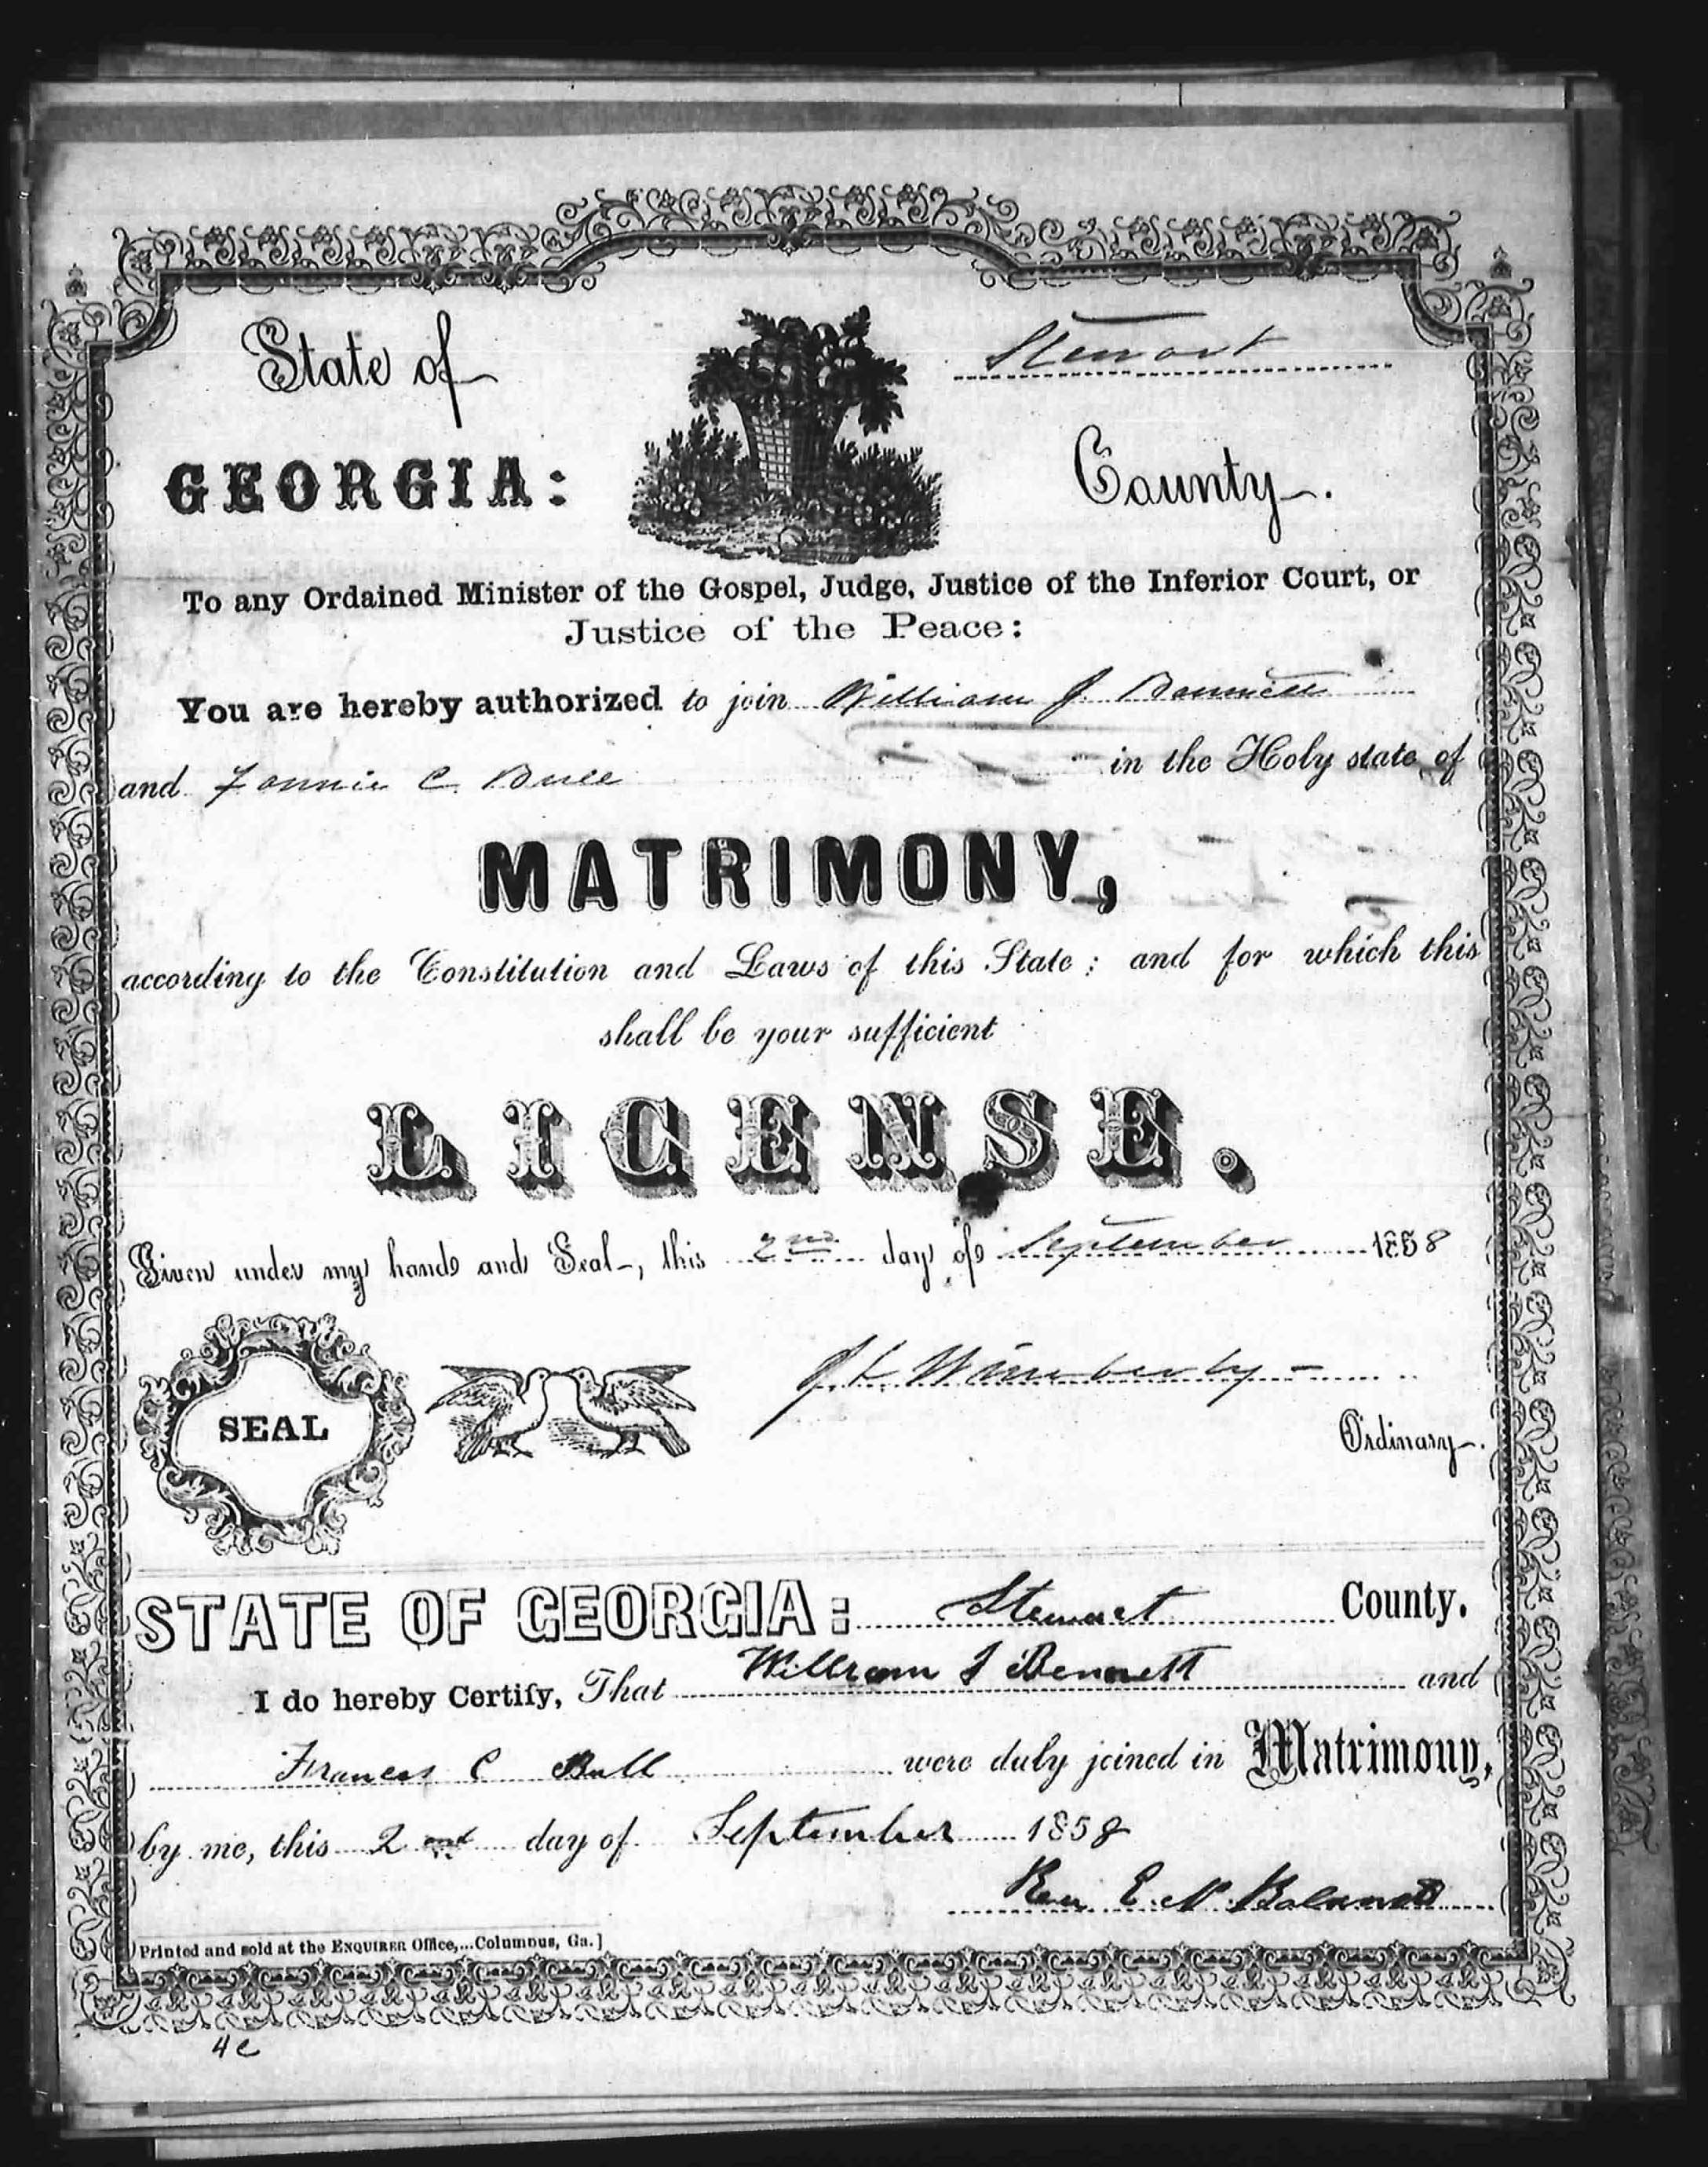 State of
Stewart
GEORGIA:
County.
To any Ordained Minister of the Gospel, Judge, Justice of the Inferior Court, or
Justice of the Peace:
You are hereby authorized to join William J. Bennett
and Fannie C. Bull in the Holy state of
MATRIMONY,
according to the Constitution and Laws of this State; and for which this
shall be your sufficient
LICENSE.
Given under my hand and Seal, this 2nd day of September 1858
SEAL
J L Wimberly
Ordinary.
STATE OF GEORGIA: Stewart County.
I do hereby Certify, That William J Bennett and
Frances C Bull were duly joined in Matrimony,
by me, this 2nd day of September 1858
Rev E. N.
Printed and sold at the ENQUIRER Office,...Columbus, Ga.]
4c